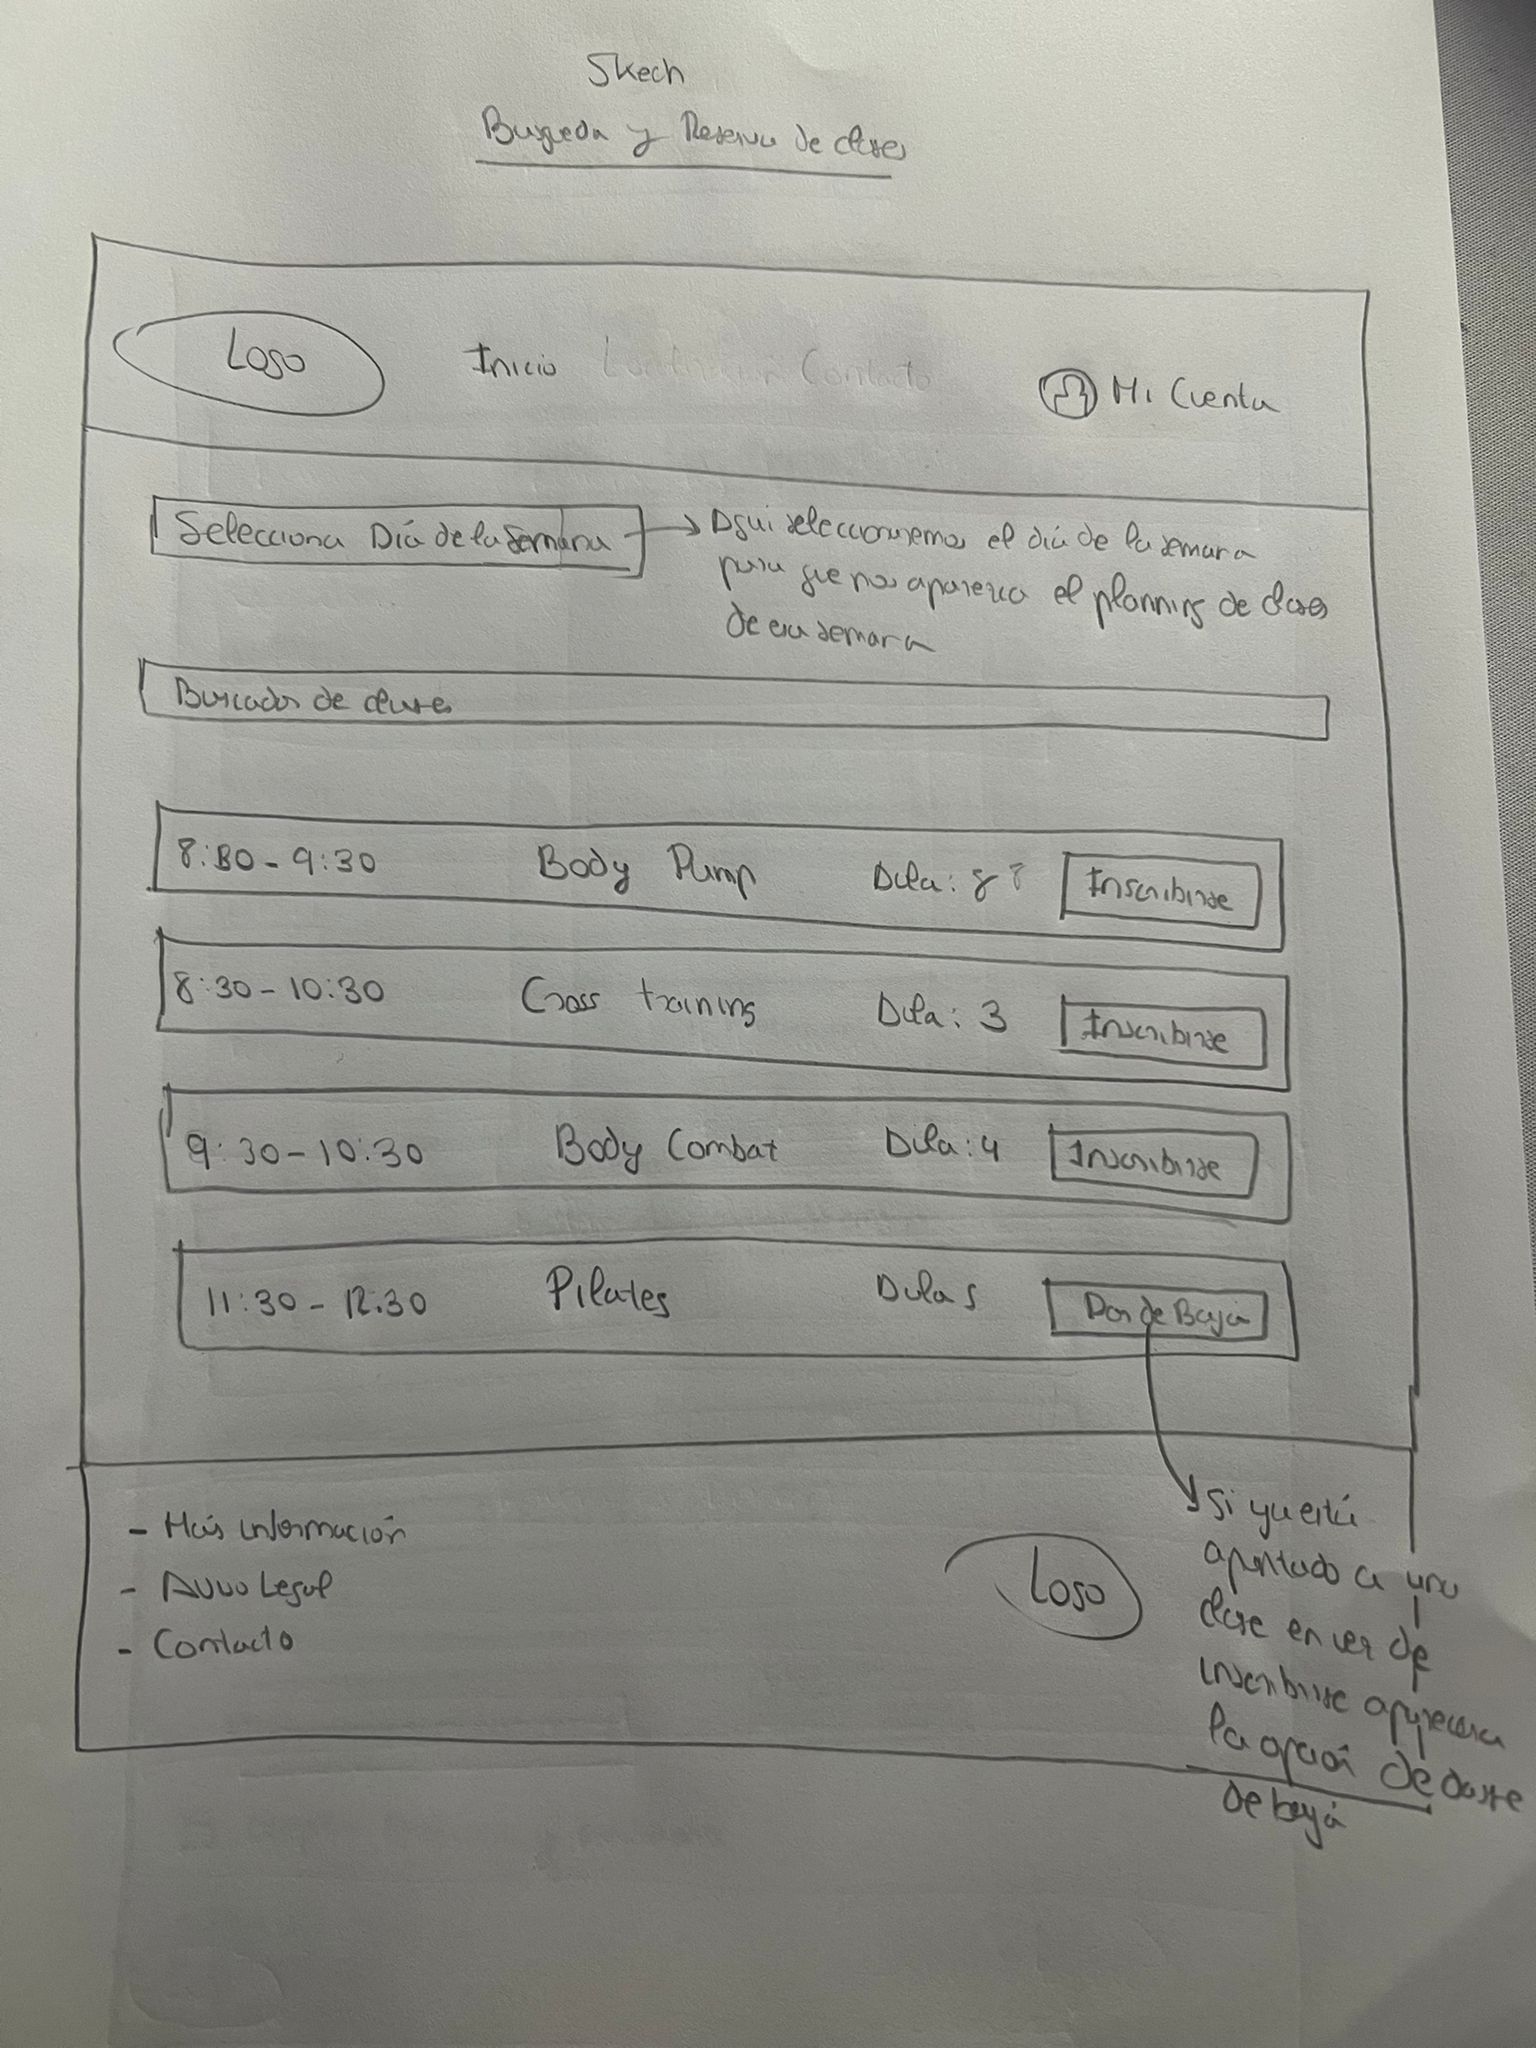 Skech
Busqueda y Reserva de clases
Logo
Inicio
Contacto
Mi Cuenta
Selecciona Día de la Semana
Aqui seleccionaremos el día de la semana
para que nos aparezca el planning de clases
de esa semana
Buscador de clases
8:30 - 9:30 Body Pump Aula: 8 Inscribirse
8:30 - 10:30 Cross training Aula: 3 Inscribirse
9:30 - 10:30 Body Combat Aula: 4 Inscribirse
11:30 - 12:30 Pilates Aula 5 Dar de Baja
- Más información
- Aviso Legal
- Contacto
Logo
Si ya está
apuntado a una
clase en vez de
inscribirse aparecera
la opción de darse
de baja